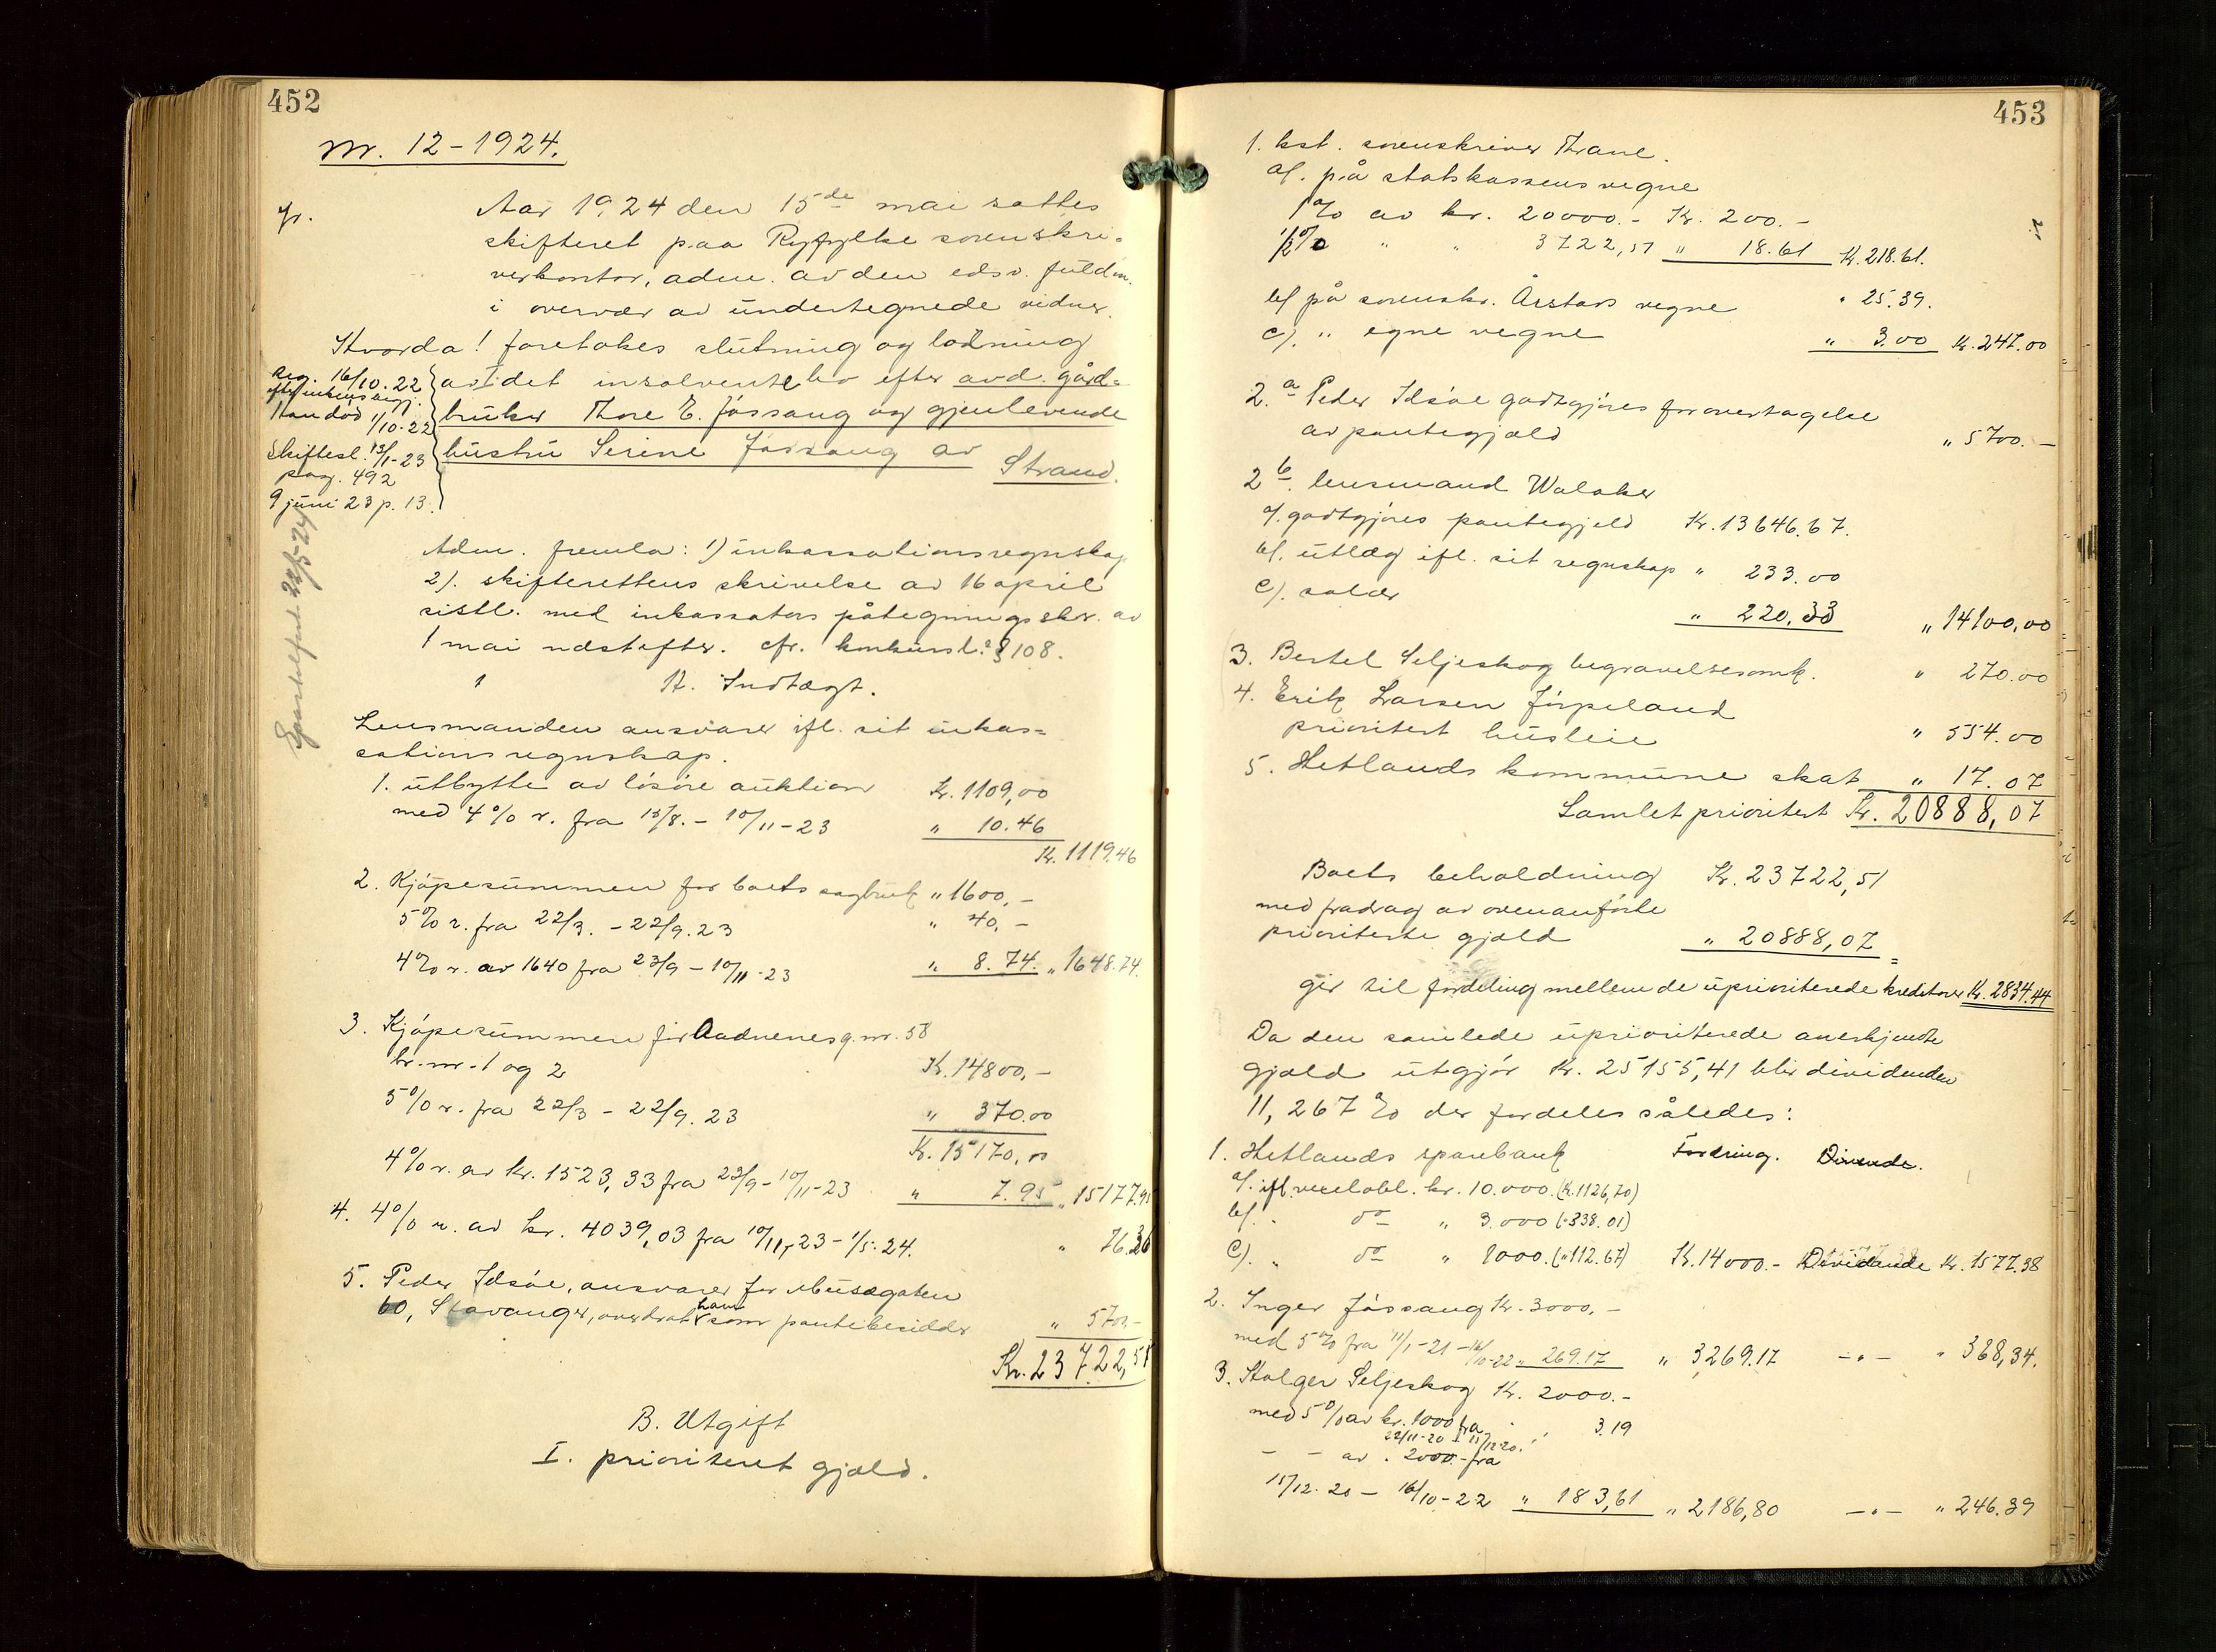 452
Nr. 12-1924.
Aar 1924 den 15de mai sattes
skifteret paa Ryfylke sorenskri-
verkontor, adm. av den edsv. fuldm.
i overvær av undertegnede vidner.
Hvorda! foretokes slutning og lodning
Reg. 16/10.22
efter
Han død 1/10-22
Skiftesl. 13/1-23
pag. 492
9 juni 23 p. 13.
av det insolvente bo efter avd. gård-
bruker Thore E. Jössang og gjenlevende
hustru Serine Jössang av
Strand.
22/5-24
Adm. fremla: 1) inkassationsregnskap
2). skifterettens skrivelse av 16 april
sistl. med inkassators påtegningsskr. av
1 mai ndstefter. cfr. konkursl. § 108.
A. Indtægt.
Lensmanden ansvarer ifl. sit inkas-
sationsregnskap.
1. utbytte av lösöre auktion Kr. 1109,00
med 4% r. fra 15/8. - 10/11-23 " 10.46
Kr. 1119.46
2. Kjöpesummen for boets sagbruk " 1600,-
5% r. fra 22/3. - 22/9. 23 " 40,-
4% r. av 1640 fra 23/9 - 10/11-23 " 8.74. " 1648.74.
3. Kjöpesummen for Aadnenes g.nr. 58
br.nr. 1 og 2 Kr. 14800,-
5% r. fra 22/3 - 22/9. 23 " 370.00
Kr. 15170,00
4% r. av kr. 1523,33 fra 23/9-10/11-23 " 7.95 " 15177.95
4. 4% r. av kr. 4039,03 fra 10/11-23 - 1/5-24. " 76.36
5. Peder Idsöe, ansvarer for Musægaten
60, Stavanger, overdrat ham som pantebesidder " 5700,-
Kr. 23722,51
B. Utgift
I. prioriteret gjæld.
453
1. kst. sorenskriver Thrane.
a/. på statskassens vegne
1% av kr. 20000.- Kr. 200.-
1/2% " " 3722,51 " 18.61 Kr. 218.61.
b/ på sorenskr. Årstads vegne " 25.39.
c/. " egne vegne " 3.00 Kr. 247.00
2.a Peder Idsöe godtgjöres for overtagelse
av pantegjæld " 5700.-
2b. lensmand Walaker
a/. godtgjöres pantegjeld Kr. 13646.67.
b/. utlæg ifl. sit regnskap " 233.00
c/. salær " 220.33 " 14100,00
3. Bertel Seljeskog begravelsesomk. " 270.00
4. Erik Larsen Jörpeland
prioritert husleie " 554.00
5. Hetlands kommune skat " 17.07
Samlet prioritert Kr. 20888,07
Boets beholdning Kr. 23722,51
med fradrag av ovenanförte
prioriterte gjæld " 20888,07
gir til fordeling mellem de uprioriterede kreditorer Kr. 2834.44
Da den samlede uprioriterede anerkjendte
gjæld utgjör Kr. 25155,41 blir dividenden
11,267 % der fordeles således:
1. Hetlands sparebank Fordring. Dividende.
a/. ifl. vexelobl. kr. 10.000. (Kr. 1126,70)
b/. " do " 3.000 (" 338.01)
c/. " do " 1000. (" 112.67) Kr. 14000.- Dividende Kr. 1577.38
2. Inger Jössang Kr. 3000,-
med 5% fra 11/1-21 - 16/10-22 " 269.17 " 3269.17 -"- " 368,34.
3. Holger Seljeskog Kr. 2000.-
med 5% av kr. 1000 fra
22/11-20 - 15/12-20. " 3.19
- - av . 2000.- fra
15/12-20 - 16/10-22 " 183,61 " 2186,80 -"- " 246.39